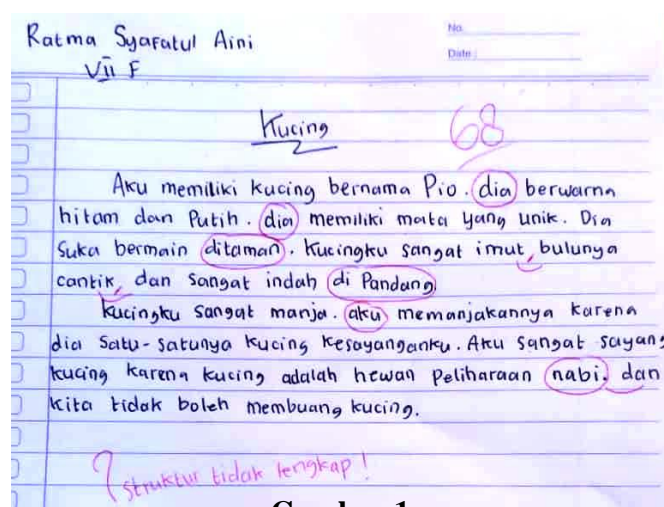 Ratma Syafatul Aini
VII F
No.
Date :
Kucing
68
Aku memiliki kucing bernama Pio. dia berwarna
hitam dan Putih. dia memiliki mata yang unik. Dia
Suka bermain ditaman. Kucingku sangat imut, bulunya
cantik, dan sangat indah di Pandang
Kucingku sangat manja. aku memanjakannya karena
dia Satu-satunya kucing kesayanganku. Aku sangat sayang
kucing karena kucing adalah hewan Peliharaan nabi. dan
kita tidak boleh membuang kucing.
Struktur tidak lengkap!
Gambar 1